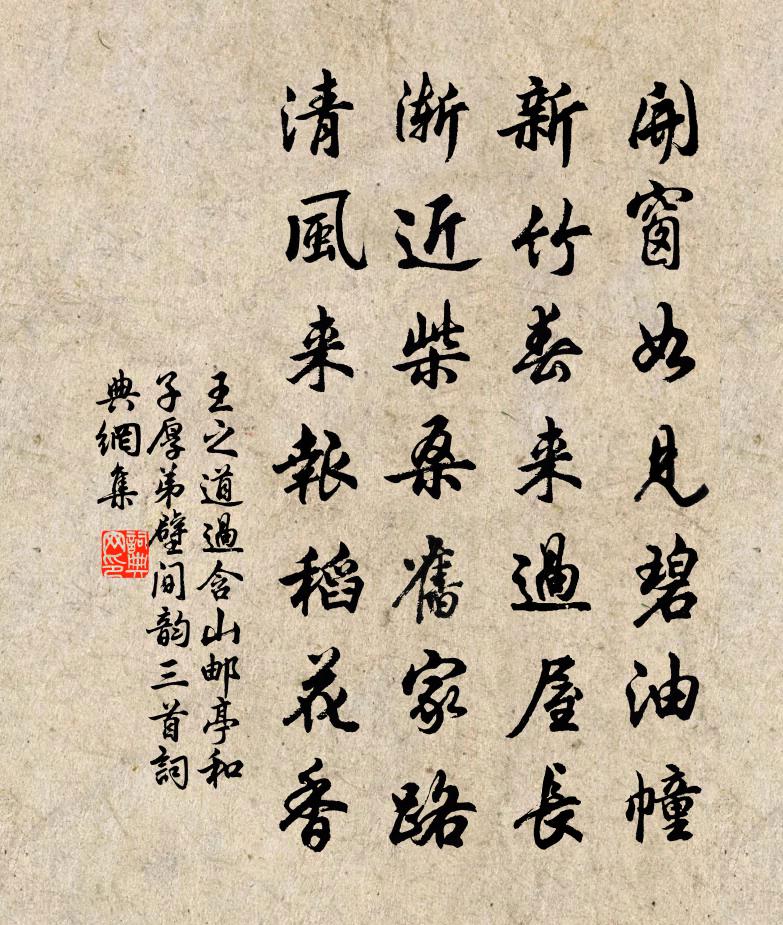 開窗如見碧油幢
新竹春来過屋長
漸近柴桑舊家路
清風来報稻花香
王之道過含山邮亭和
子厚弟壁间韵三首詞
典網集
詞典
网印